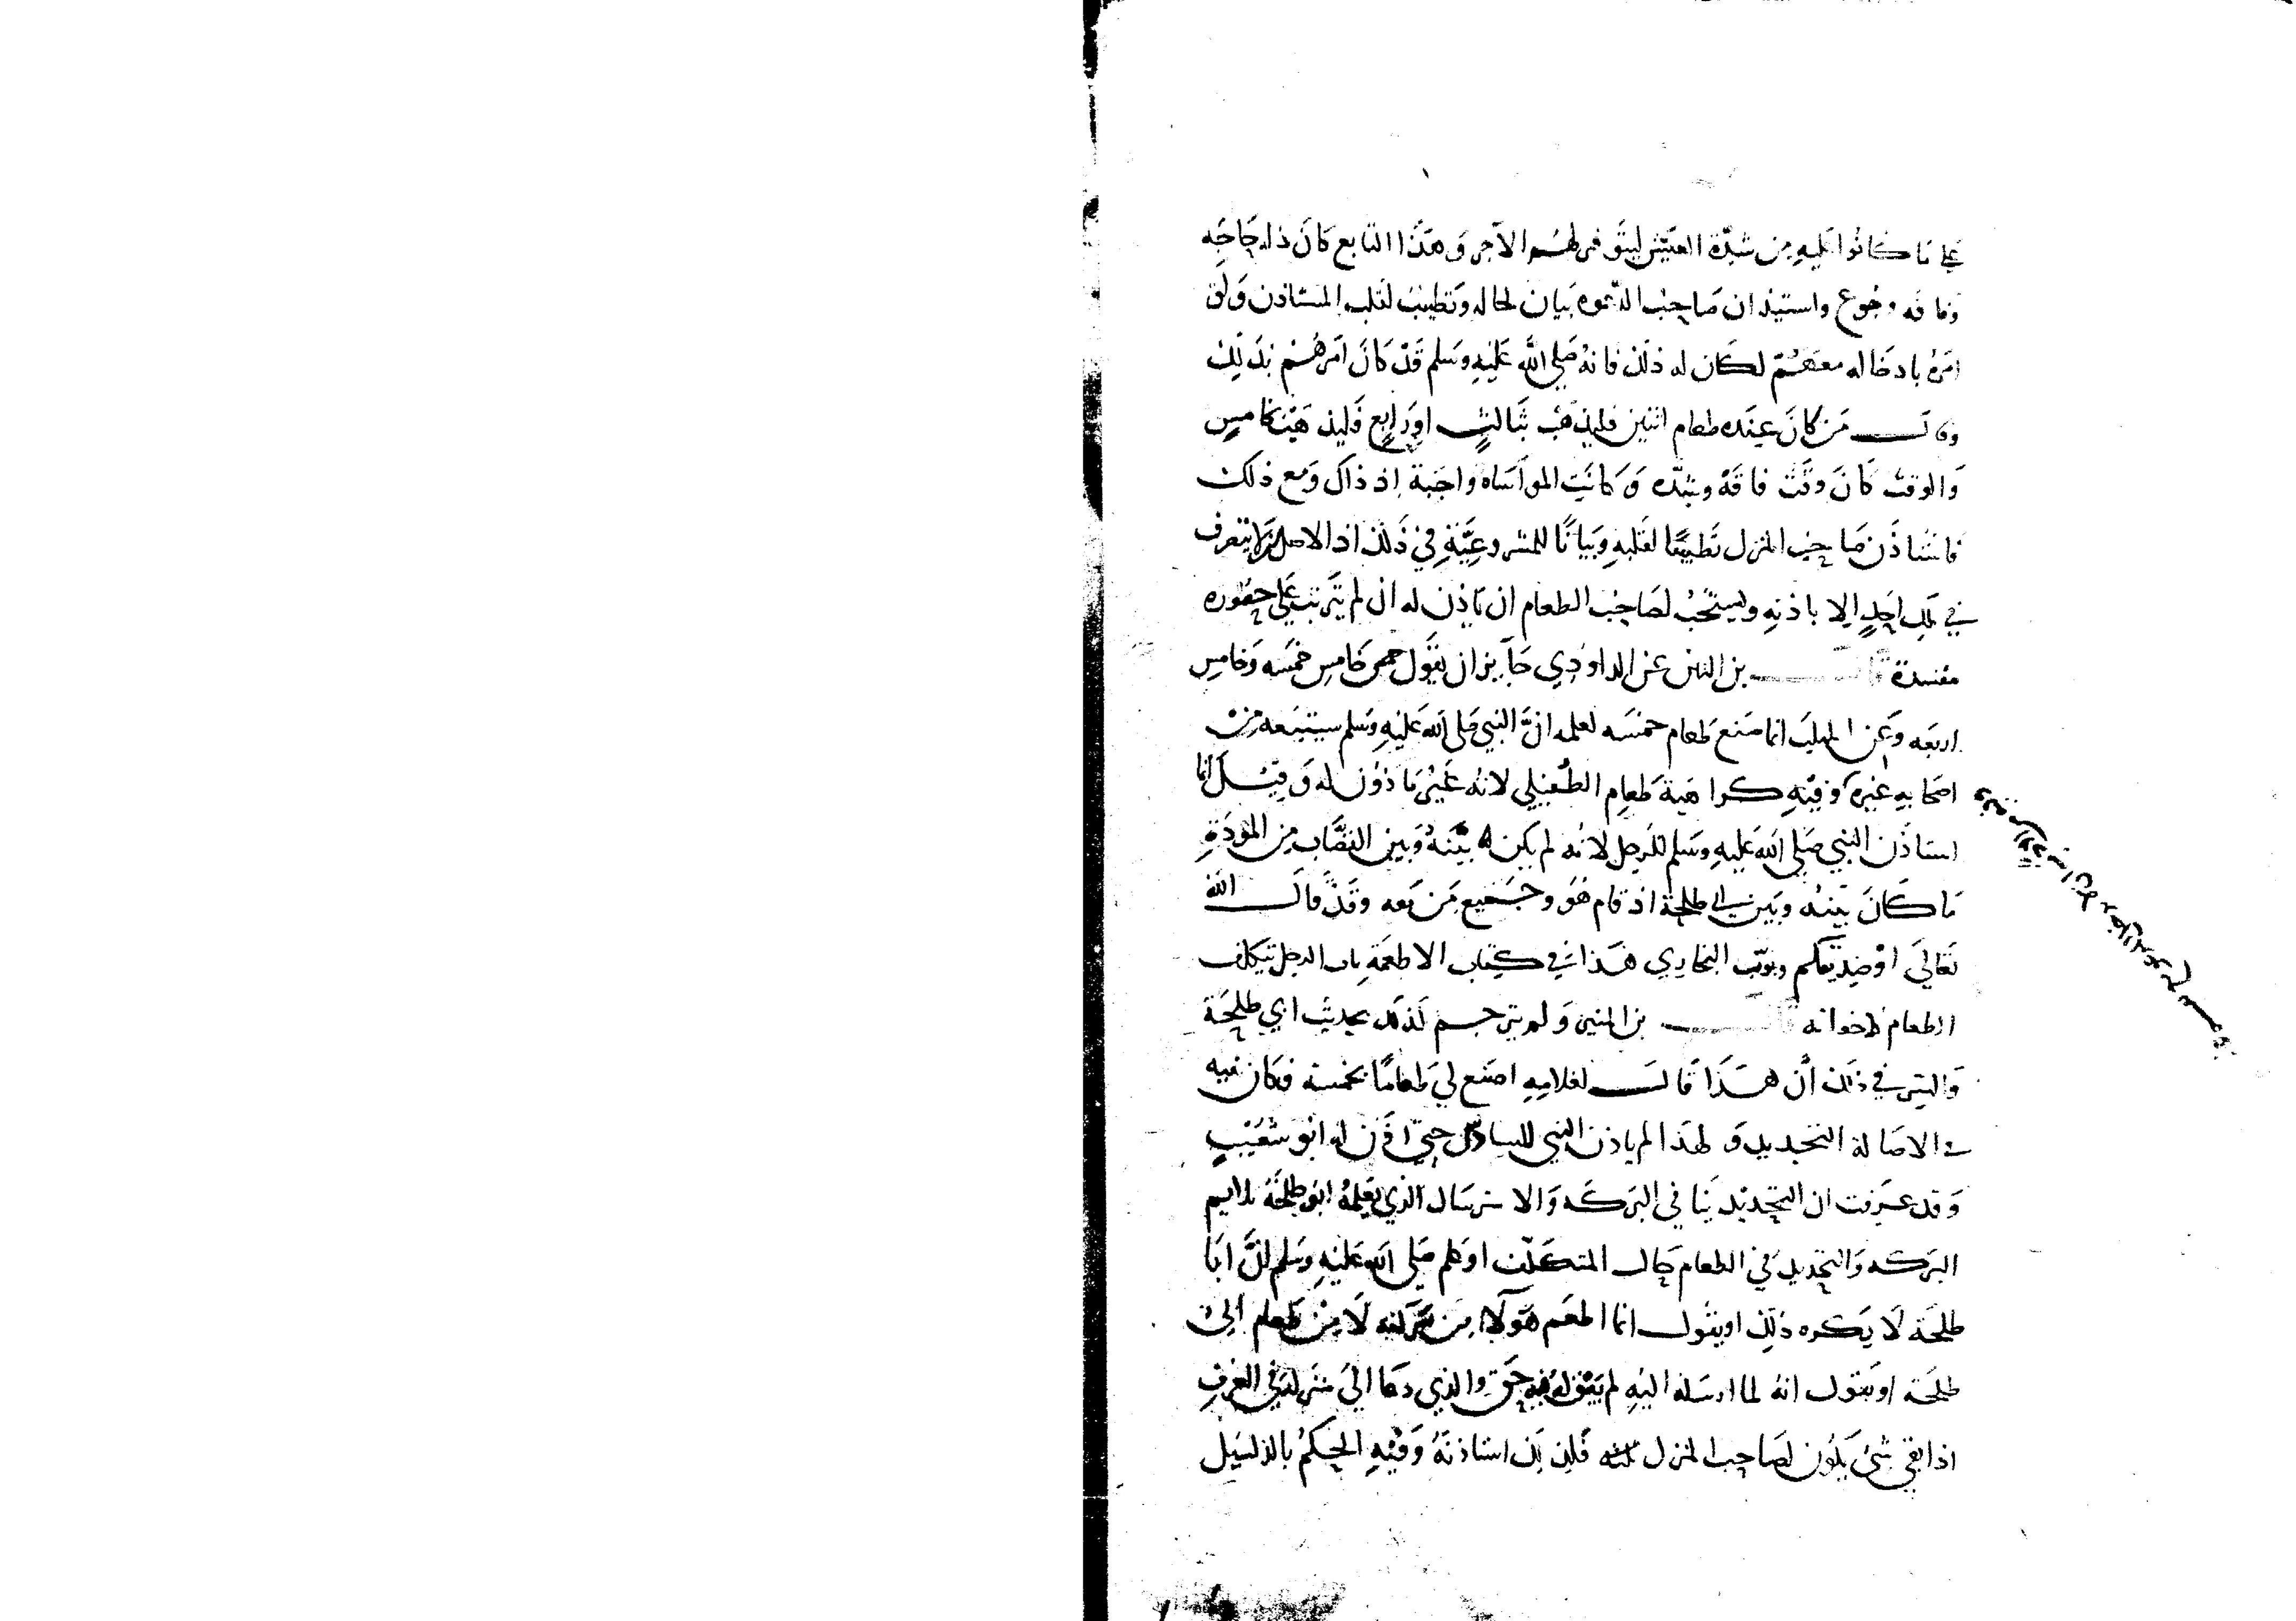 على ما كانوا عليه من شدة العيش ليتوفر لهم الاجر وهذا التابع كان ذا حاجه
وفاقه وجوع واستيذان صاحب الدعوه بيان لحاله وتطييب لقلب المستاذن ولو
امره بادخاله معهم لكان له ذلك فانه صلى الله عليه وسلم قد كان امرهم بذلك
وقال من كان عنده طعام اثنين فليذهب بثالث او رابع فليذهب بخامس
والوقت كان وقت فاقة وشده وكانت المواساه واجبة اذ ذاك ومع ذلك
فاستاذن صاحب المنزل تطييبا لقلبه وبيانا للمشروعية في ذلك اذ الاصل ان لا يتصرف
في ملك احد الا باذنه ويستحب لصاحب الطعام ان ياذن له ان لم يترتب على حضوره
مفسدة قال بن التين عن الداودي جايز ان يقول خامس خمسه وخامس
اربعه وعن المهلب انما صنع طعام خمسه لعلمه ان النبي صلى الله عليه وسلم سيتبعه من
اصحابه غيره وفيه كراهية طعام الطفيلي لانه غير ماذون له وقيل انما
استاذن النبي صلى الله عليه وسلم للرجل لانه لم يكن بينه وبين القصاب من المودة
ما كان بينه وبين ابي طلحة اذ قام هو وجميع من معه وقد قال الله
تعالى او صديقكم وبوب البخاري هذا في كتاب الاطعمة باب الرجل يتكلف
الطعام لاخوانه قال بن المنير ولم يترجم كذلك بحديث ابي طلحة
والسر في ذلك ان هذا قال لغلامه اصنع لي طعاما بخمسه فكان نيته
في الاصالة التحديد ولهذا لم ياذن النبي للسادس حتى اذن له ابو شعيب
وقد عرفت ان التحديد ينافي البركه والاسترسال الذي يعلمه ابو طلحة يلايم
البركه والتحديد في الطعام حال المتكلف او علم صلى الله عليه وسلم ان ابا
طلحة لا يكره ذلك او يقول انما اطعم هولاء من بركته لا من طعام ابي
طلحة او يقول انه لما ارسله اليه لم يبق له فيه حق والذي دعا الى منزله في العرف
اذا بقي شي يكون لصاحب المنزل فلذلك استاذنه وفيه الحكم بالدليل